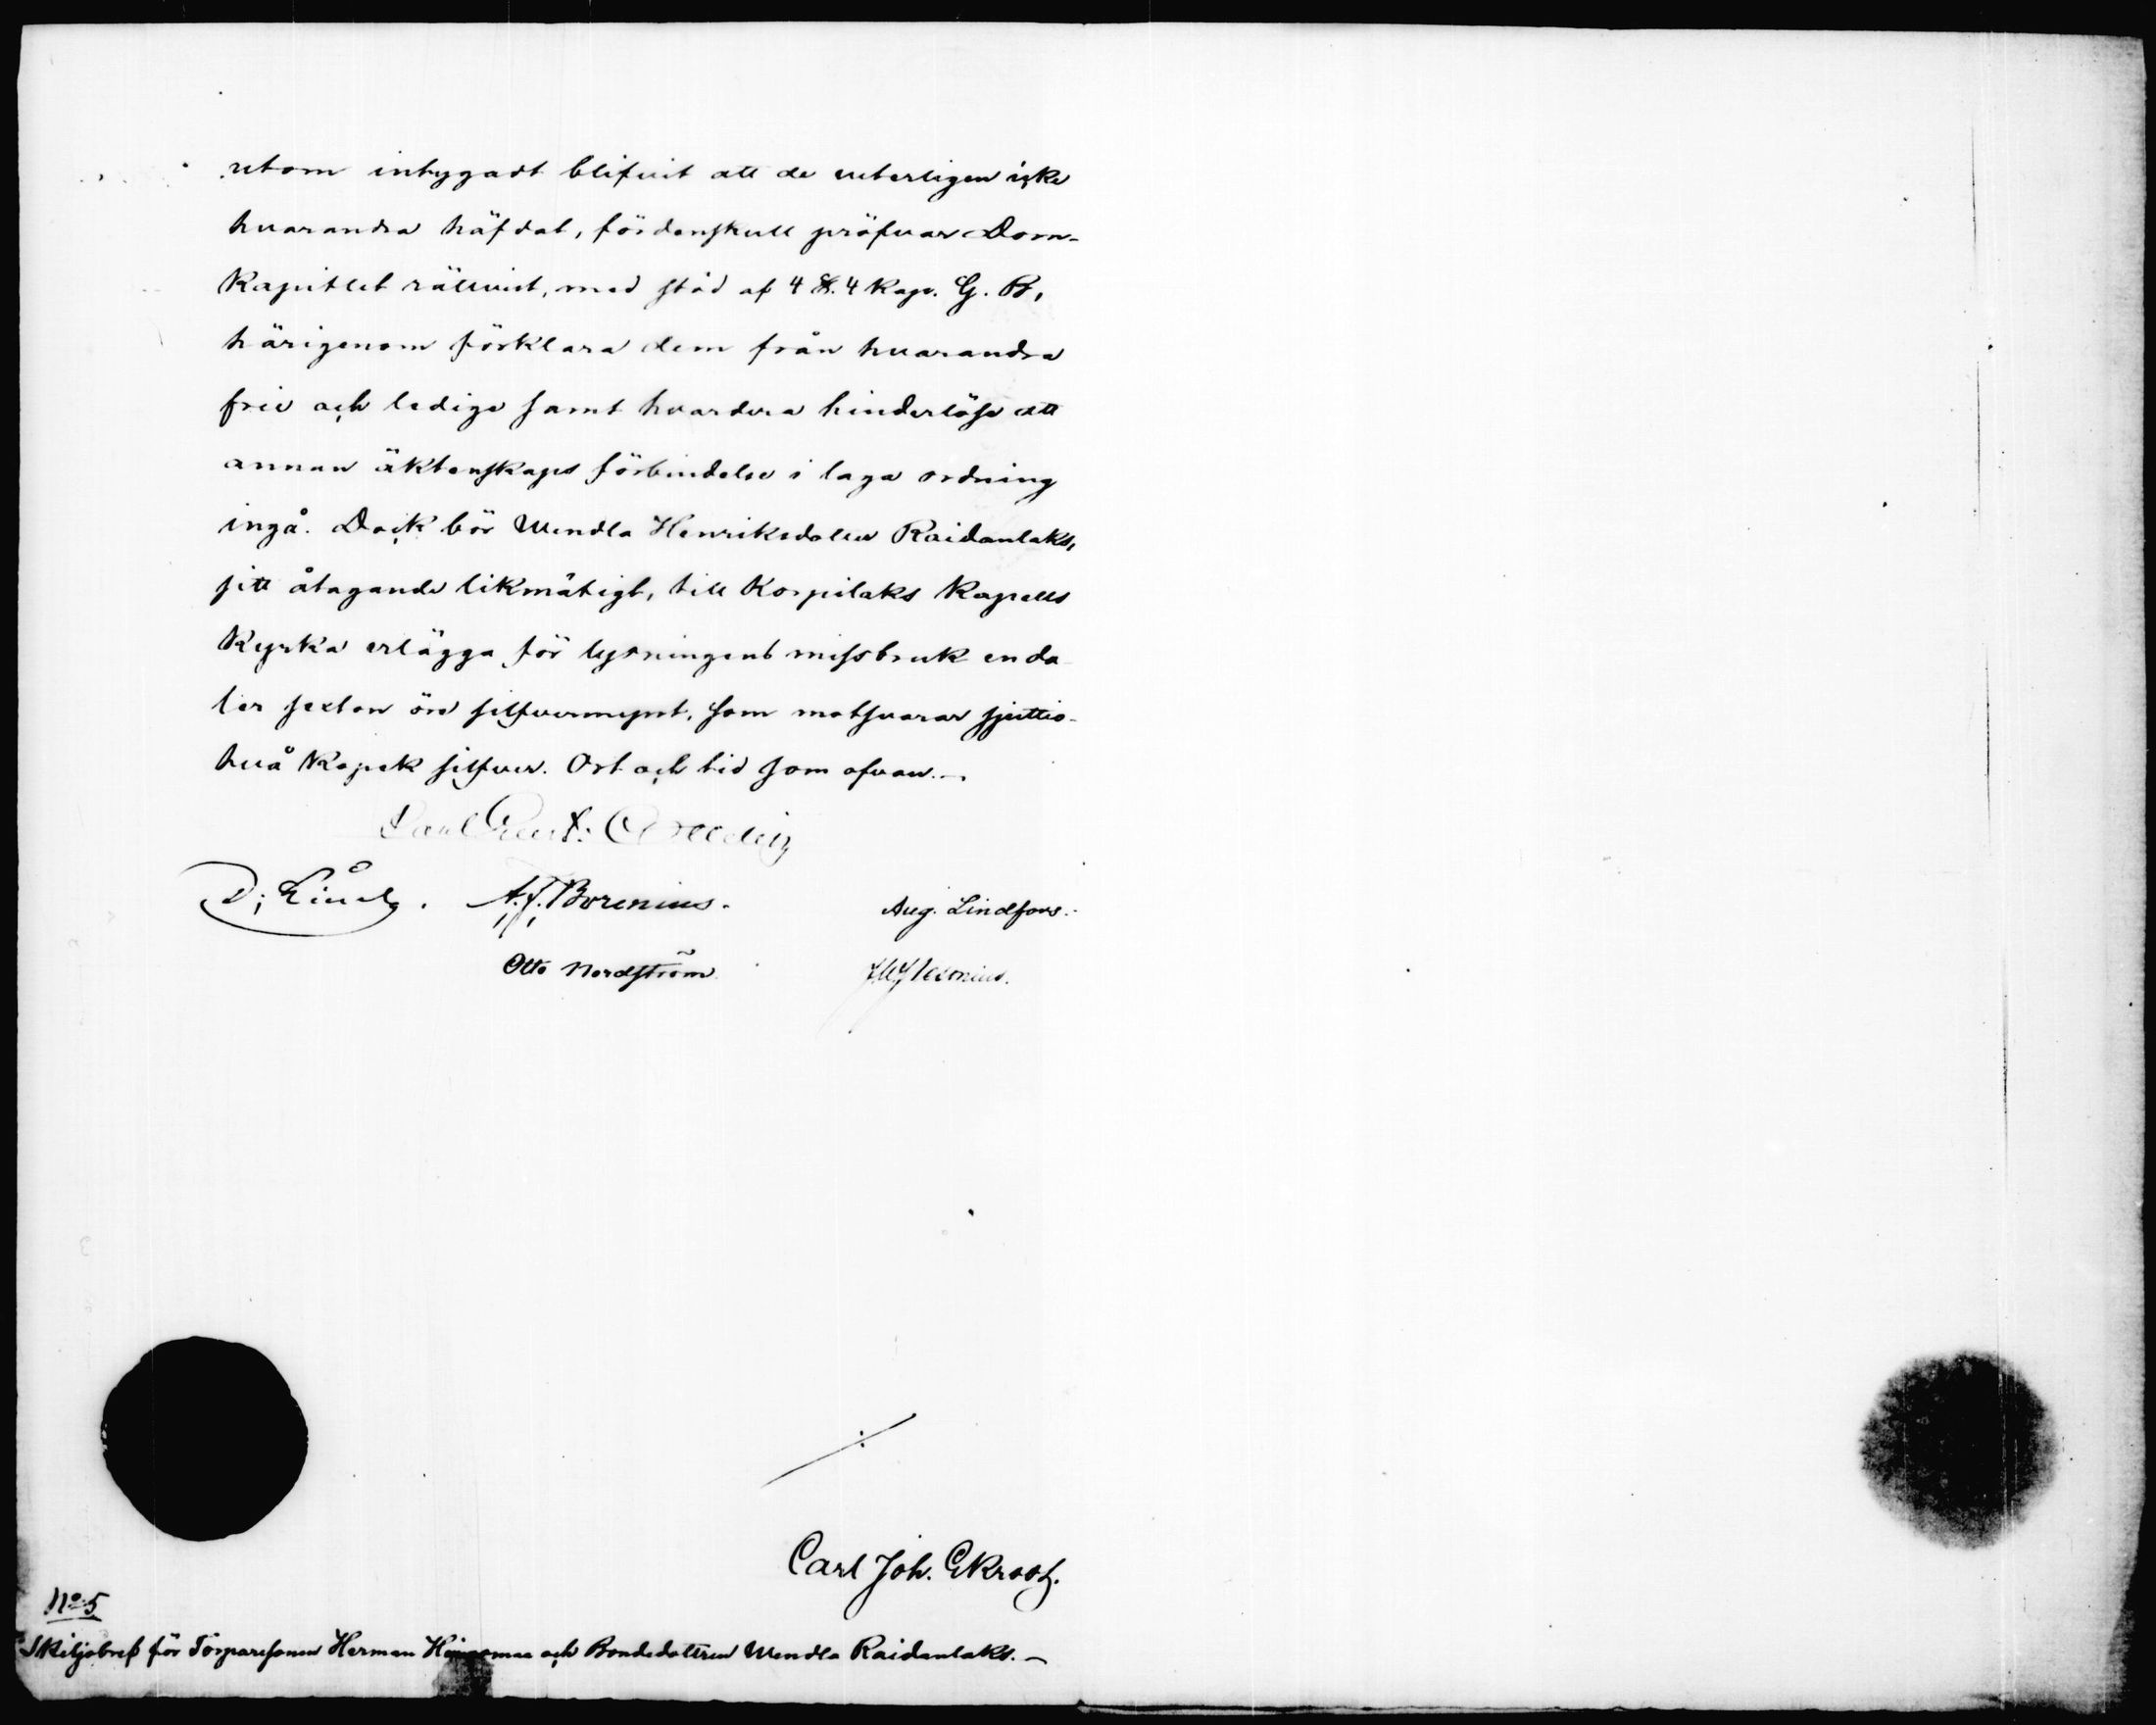 utom intygadt blifvit att de veterligen icke
hvarandra häfdat, fördenskull pröfvar Dom-
Kapitlet rättvist, med stöd af 4 §. 4 Kap. G. B.
härigenom förklara dem från hvarandra
frie och ledige samt hvardera hinderlöse att
annan äktenskaps förbindelse i laga ordning
ingå. Dock bör Wendla Henriksdotter Raidanlaks,
sitt åtagande likmätigt, till Korpilaks Kapells
Kyrka erlägga för lysningens missbruk en da
ler sexton öre silfvermynt, som motsvarar sjuttio-
två Kopek silfver. Ort och tid som ofvan.—
A. J. Borenius.
Aug. Lindfors.
Otto Nordström
Carl Joh. Ekroos.
No 5
Skiljobref för Torparesonen Herman och Bondedottren Wendla Raidanlaks.—